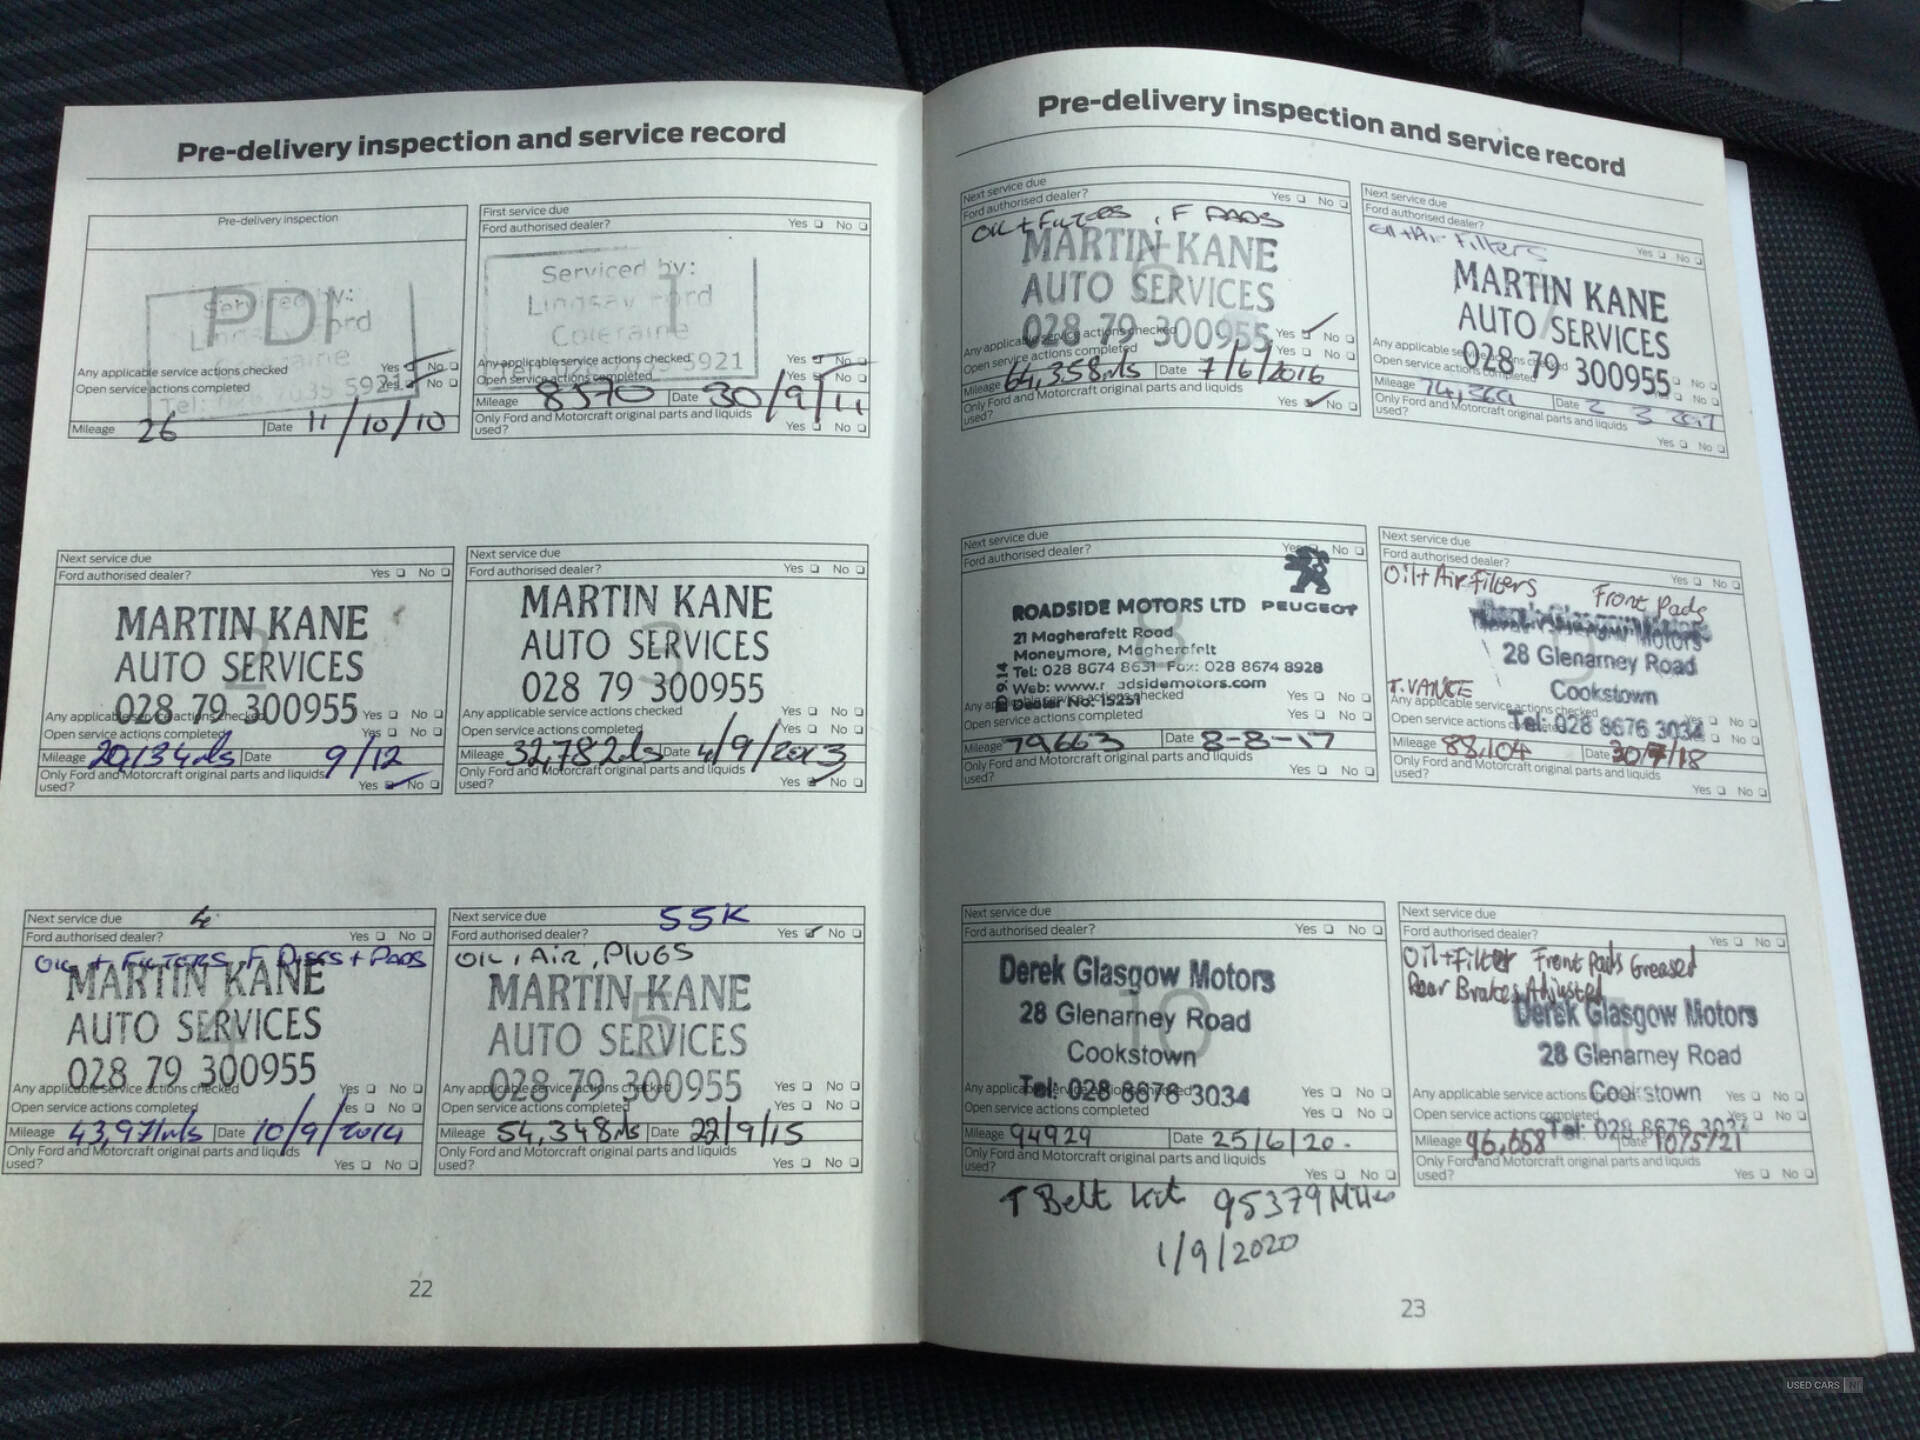 Pre-delivery inspection and service record
Pre-delivery inspection
PDI
Serviced by:
Any applicable service actions checked Yes No
Open service actions completed Yes No
Mileage 26 Date 11/10/10
First service due
Ford authorised dealer? Yes No
1
Serviced by:
Lindsay Ford
Coleraine
5921
Any applicable service actions checked Yes No
Open service actions completed Yes No
Mileage 8570 Date 30/9/11
Only Ford and Motorcraft original parts and liquids
used? Yes No
Next service due
Ford authorised dealer? Yes No
2
MARTIN KANE
AUTO SERVICES
028 79 300955
Any applicable service actions checked Yes No
Open service actions completed Yes No
Mileage 20,134mls Date 9/12
Only Ford and Motorcraft original parts and liquids
used? Yes No
Next service due
Ford authorised dealer? Yes No
3
MARTIN KANE
AUTO SERVICES
028 79 300955
Any applicable service actions checked Yes No
Open service actions completed Yes No
Mileage 32,782mls Date 4/9/2013
Only Ford and Motorcraft original parts and liquids
used? Yes No
Next service due
Ford authorised dealer? Yes No
OIL + FILTERS, F DISCS + PADS
4
MARTIN KANE
AUTO SERVICES
028 79 300955
Any applicable service actions checked Yes No
Open service actions completed Yes No
Mileage 43,971mls Date 10/9/2014
Only Ford and Motorcraft original parts and liquids
used? Yes No
Next service due 55K
Ford authorised dealer? Yes No
OIL, AIR, PLUGS
5
MARTIN KANE
AUTO SERVICES
028 79 300955
Any applicable service actions checked Yes No
Open service actions completed Yes No
Mileage 54,348mls Date 22/9/15
Only Ford and Motorcraft original parts and liquids
used? Yes No
22
Pre-delivery inspection and service record
Next service due
Ford authorised dealer? Yes No
OIL + FILTERS, F PADS
6
MARTIN KANE
AUTO SERVICES
028 79 300955
Any applicable service actions checked Yes No
Open service actions completed Yes No
Mileage 64,358mls Date 7/6/2016
Only Ford and Motorcraft original parts and liquids
used? Yes No
Next service due
Ford authorised dealer? Yes No
Oil + Air Filters
7
MARTIN KANE
AUTO SERVICES
028 79 300955
Any applicable service actions checked Yes No
Open service actions completed Yes No
Mileage Date 2 3 2017
Only Ford and Motorcraft original parts and liquids
used? Yes No
Next service due
Ford authorised dealer? Yes No
8
ROADSIDE MOTORS LTD PEUGEOT
21 Magherafelt Road
Moneymore, Magherafelt
Tel: 028 8674 8631 Fax: 028 8674 8928
Web: www.r adsidemotors.com
Dealer No: 15251
Any applicable service actions checked Yes No
Open service actions completed Yes No
Mileage 79,663 Date 8-8-17
Only Ford and Motorcraft original parts and liquids
used? Yes No
Next service due
Ford authorised dealer? Yes No
Oil + Air Filters Front Pads
9
Motors
28 Glenarney Road
Cookstown
Tel: 028 8676 3034
T. VANCE
Any applicable service actions checked Yes No
Open service actions completed Yes No
Mileage 88,104 Date 30/7/18
Only Ford and Motorcraft original parts and liquids
used? Yes No
Next service due
Ford authorised dealer? Yes No
10
Derek Glasgow Motors
28 Glenarney Road
Cookstown
Tel: 028 8676 3034
Any applicable service actions checked Yes No
Open service actions completed Yes No
Mileage 94929 Date 25/6/20.
Only Ford and Motorcraft original parts and liquids
used? Yes No
T Belt kit 95379 Miles
1/9/2020
Next service due
Ford authorised dealer? Yes No
Oil + Filter Front Pads Greased
Rear Brakes Adjusted
11
Derek Glasgow Motors
28 Glenarney Road
Cookstown
Tel: 028 8676 3034
Any applicable service actions Yes No
Open service actions completed Yes No
Mileage 96,658 Date 10/5/21
Only Ford and Motorcraft original parts and liquids
used? Yes No
23
USED CARS NI